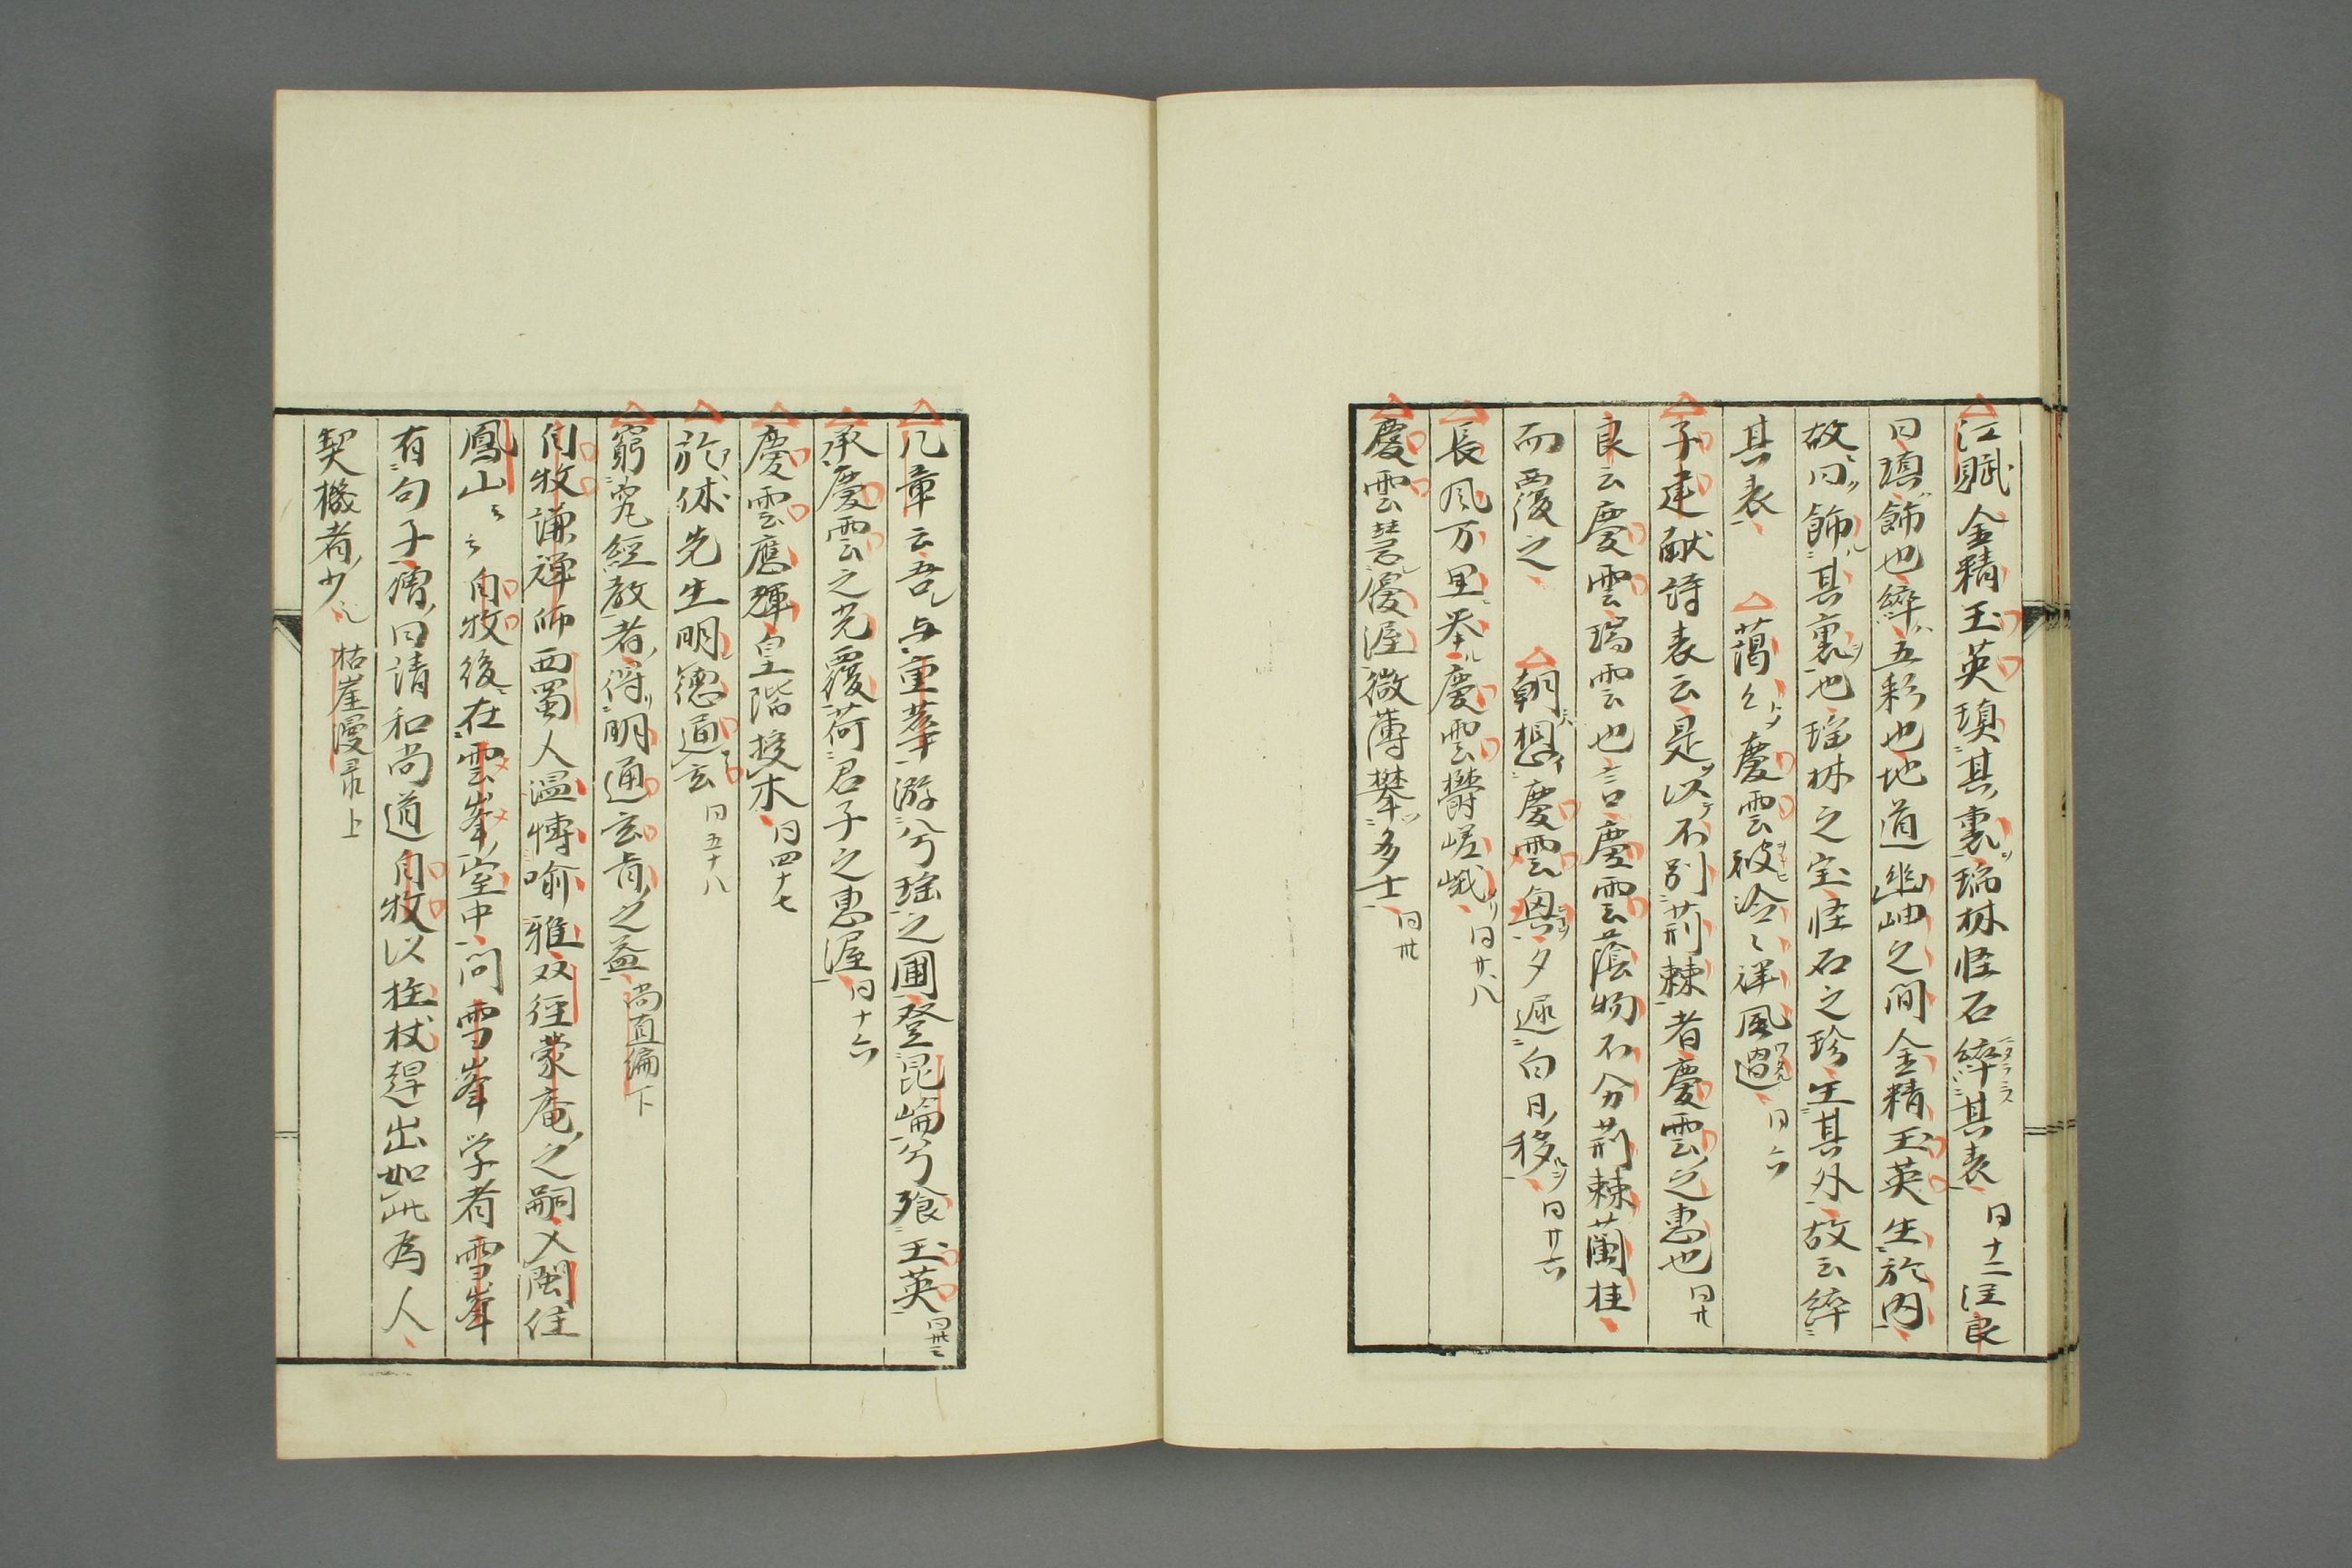 江賦金精玉英瑱其裏瑤林怪石綷其表 同十二注良
曰瑱飾也綷五彩也地道幽岫之間金精玉英生於内
故曰飾其裏也瑤林之宝怪石之珍生其外故云綷
其表 藹々慶雲被泠々祥風過 同六
子建献詩表云是以不別荊棘者慶雲之惠也 同廿
良云慶雲瑞雲也言慶雲蔭物不分荊棘蘭桂
而覆之 朝想慶雲興夕遲白日移 同廿六
長風万里举慶雲鬱嵯峨 同廿八
慶雲惠優渥微薄攀多士 同卅
九章云吾与重華游兮瑤之圃登昆崘兮飡玉英 同卅三
承慶雲之光覆荷君子之惠渥 同十六
慶雲應輝皇階授木 同四十七
於休先生明德通玄 同五十八
窮究經教者得明通玄旨之益 尚直編下
自牧謙禅師西蜀人温博喻雅双径蒙庵之嗣入閩住
鳳山々云自牧後在雪峯室中問雪峯学者雪峯
有句子僧曰請和尚道自牧以拄杖趕出如此為人
契機者少 枯崖漫录上